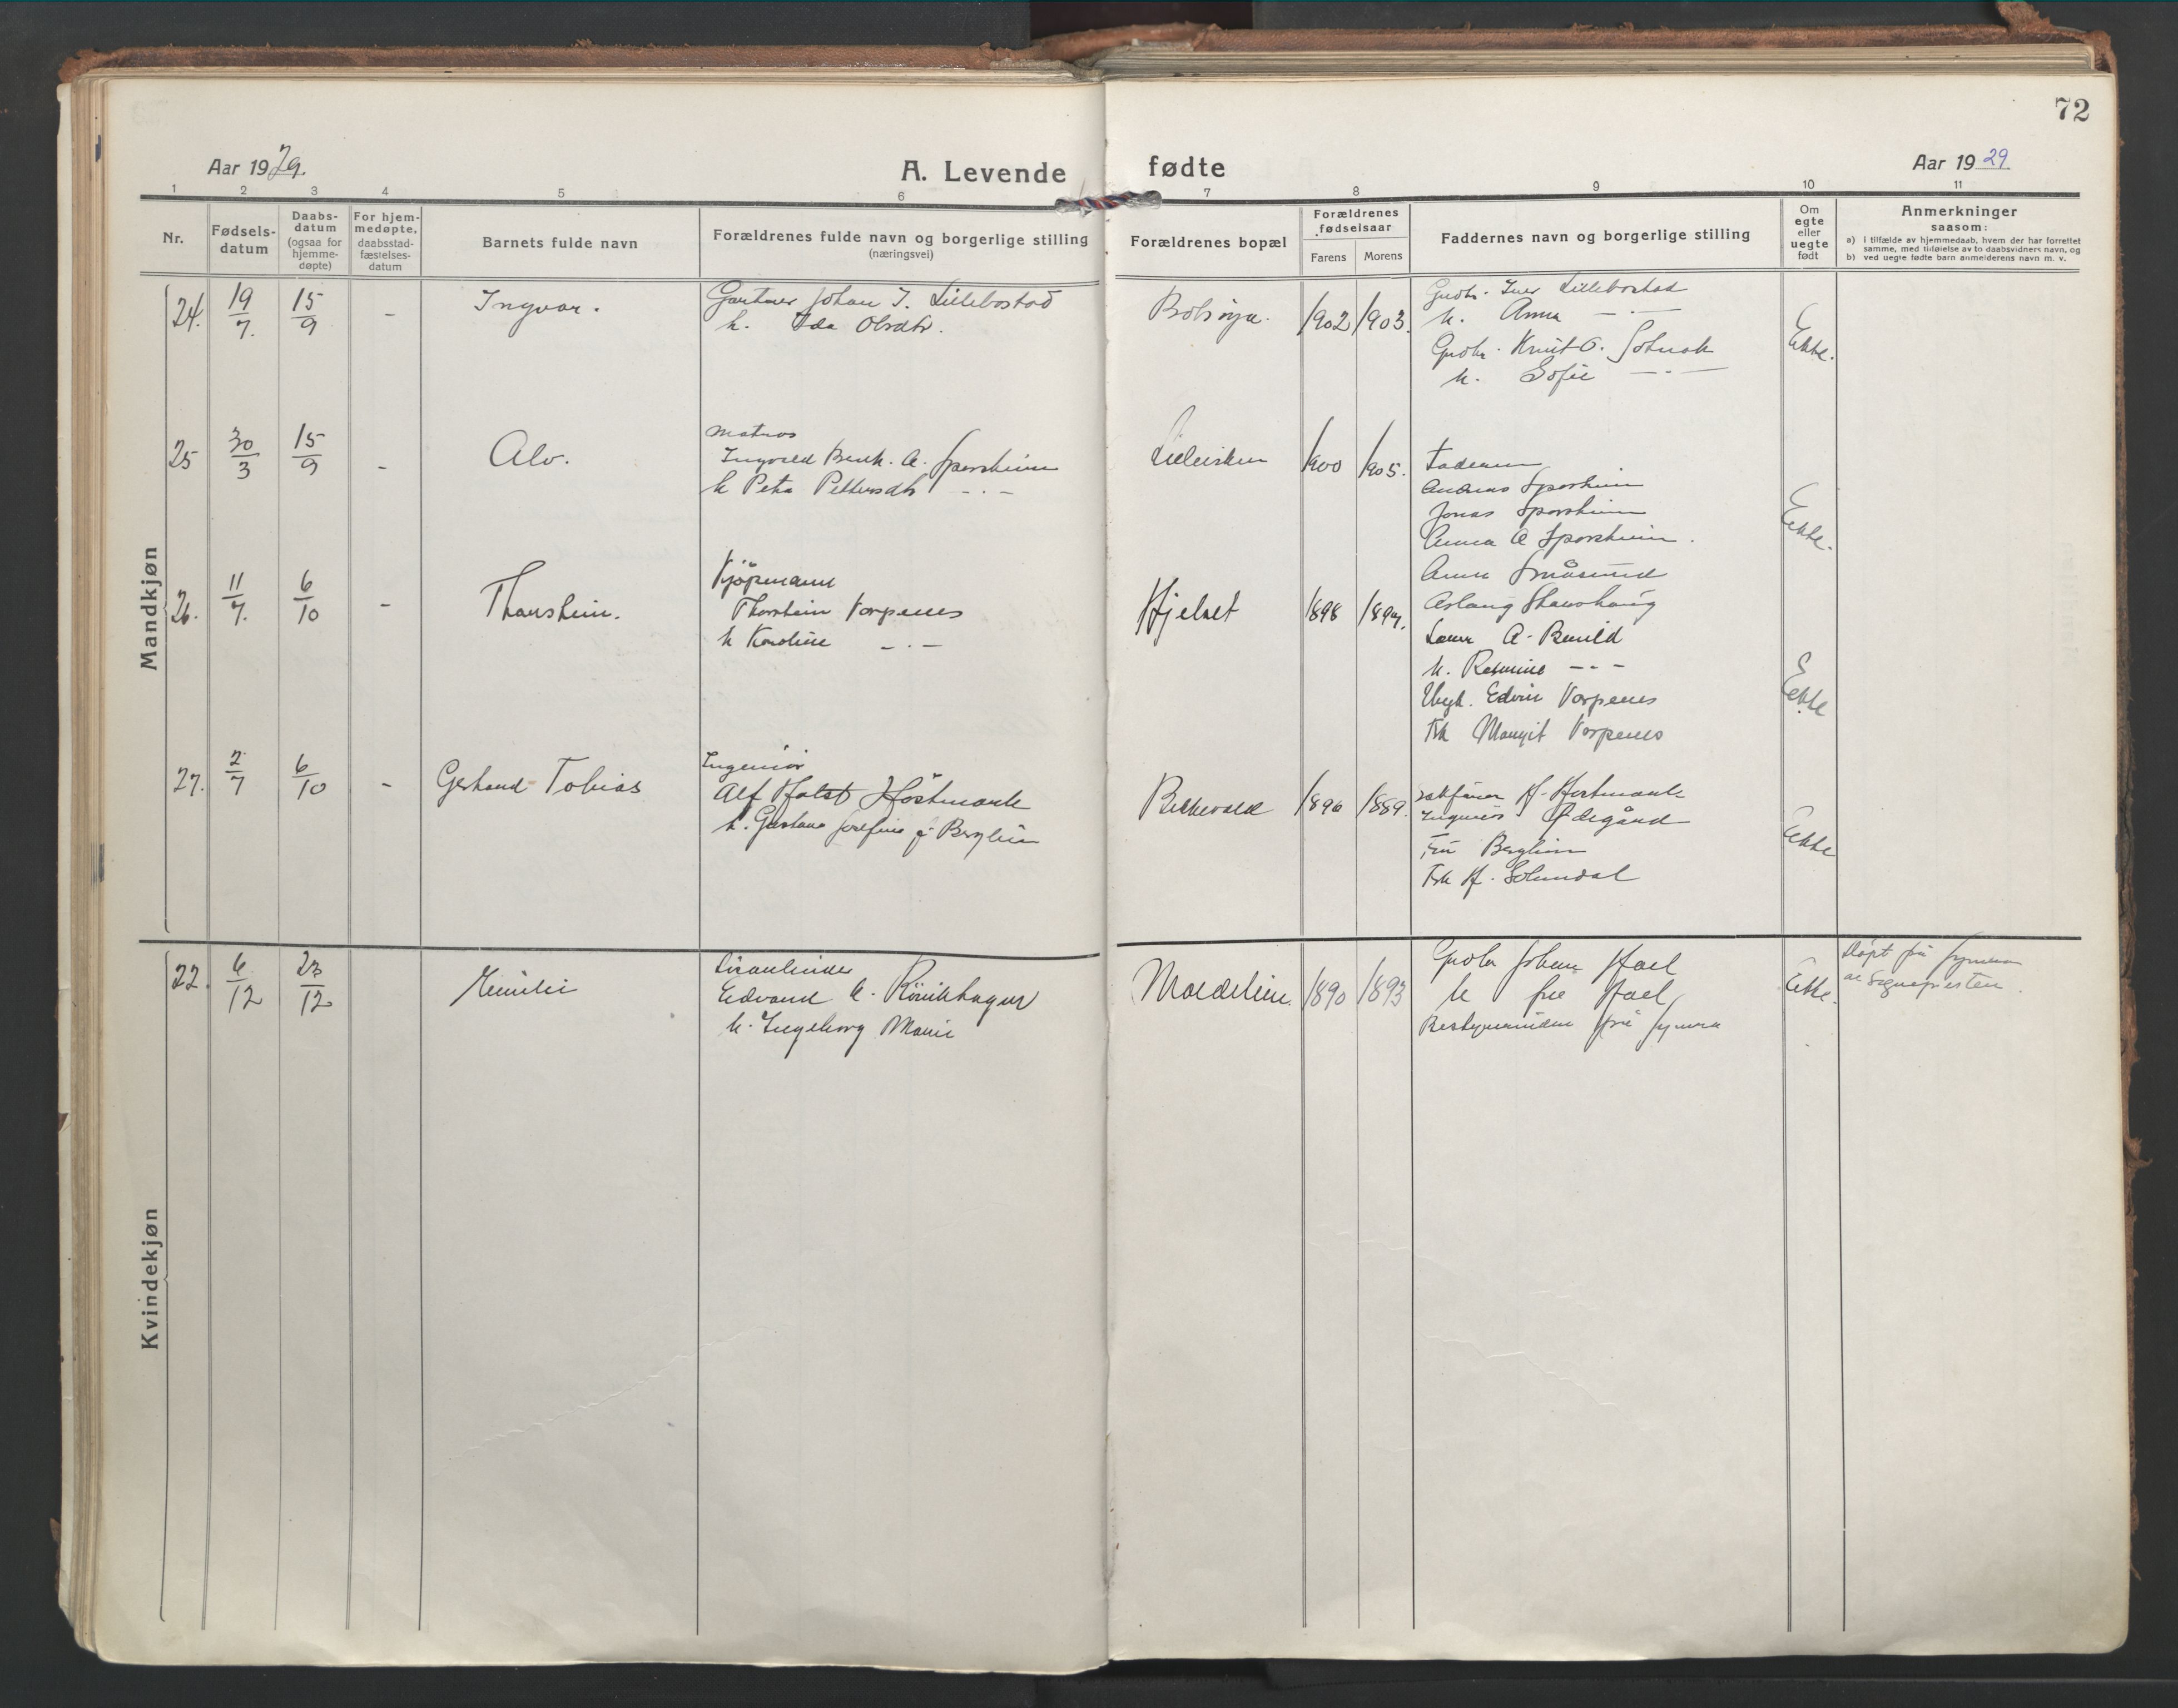 72
Aar 1929.
A. Levende fødte
Aar 1929
1 2 3 4 5 6 7 8 9 10 11
Nr.
Fødsels-
datum
Daabs-
datum
(ogsaa for
hjemme-
døpte)
For hjem-
medøpte,
daabsstad-
fæstelses-
datum
Barnets fulde navn
Forældrenes fulde navn og borgerlige stilling
(næringsvei)
Forældrenes bopæl
Forældrenes
fødselsaar
Farens Morens
Faddernes navn og borgerlige stilling
Om
egte
eller
uegte
født
Anmerkninger
saasom:
a) i tilfælde av hjemmedaab, hvem der har forrettet
samme, med tilføielse av to daabsvidners navn, og
b) ved uegte fødte barn anmelderens navn m. v.
Mandkjøn
24. 19/7. 15/9 - Ingvar.
Gartner Johan I. Lillebostad
h. Ida Olsdtr.
Bolsøya. 1902 1903.
Grdbr. Iver Lillebostad
h. Anna — . —
Grdbr. Knut O. Solnak
h. Sofie — . —
Ekte.
25 30/3 15/9 - Alv.
Matros
Ingvald Benk. A. Sporsheim
h Petra Pettersdtr — . —
1900 1905.
Faderen
Andreas Sporsheim
Jonas Sporsheim
Anna A Sporsheim.
Anna Småsund
Ekte.
26. 11/7. 6/10 - Thorstein.
Kjøpmann
Thorstein Vorpenes
h Karoline — . —
Hjelset 1898 1897.
Aslaug Skarshaug
A. Bervild
h. — . —
Ungk. Edvin Vorpenes
Frk Margit Vorpenes
Ekte
27. 2/7 6/10 - Gerhard Tobias
Ingeniør
Alf Holst Hostmark
h. Gustava Josefine f. Berglim
Bekkevold 1896 1889.
Sakfører H. Hostmark
Ingeniør Ødegård
Fru Berglim
Frk H. Solemdal
Ekte
Kvindekjøn
22. 6/12 23/12
Emilie
Edvard K. Rönikhagen
h. Ingeborg Marie
Mordalen. 1890 1893
Grdbr Johan Hoel
h fru Hoel
Bestyrerinden frå Symra
Ekte.
Døpt på Symra
av Sognepresten.